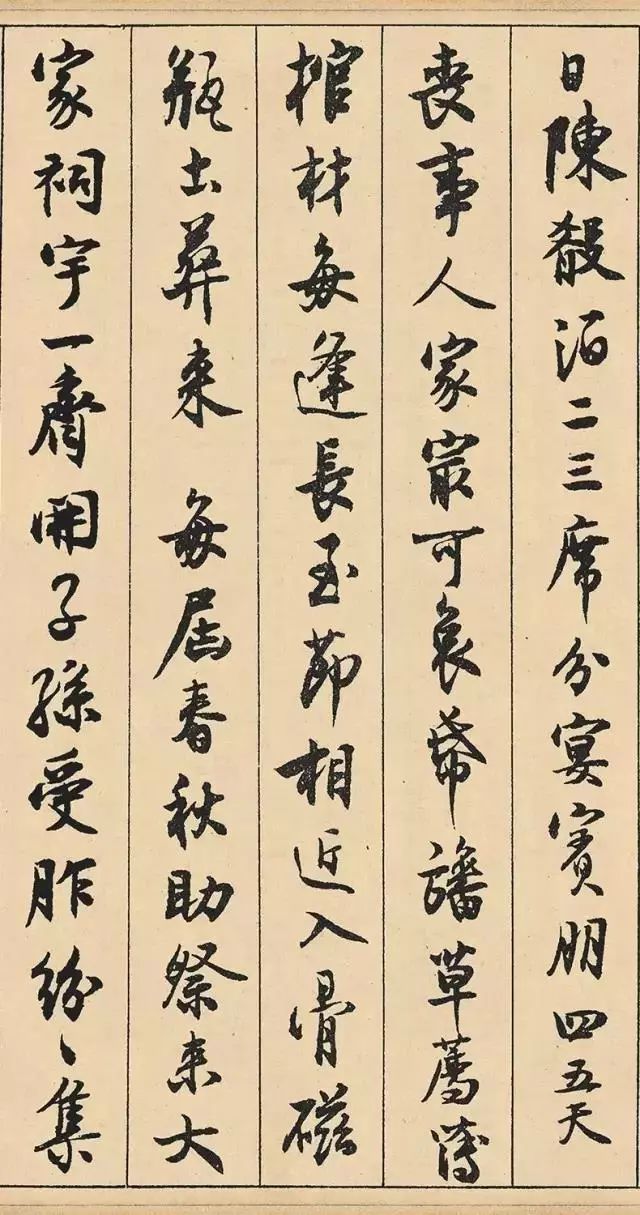 日陳殽酒二三席分宴賓朋四五天
喪事人家㝡可哀帋旛草薦薄
棺材每逢長至節相近入骨磁
瓶出葬来 每屆春秋助祭来大
家祠宇一齊開子孫受胙紛〻集